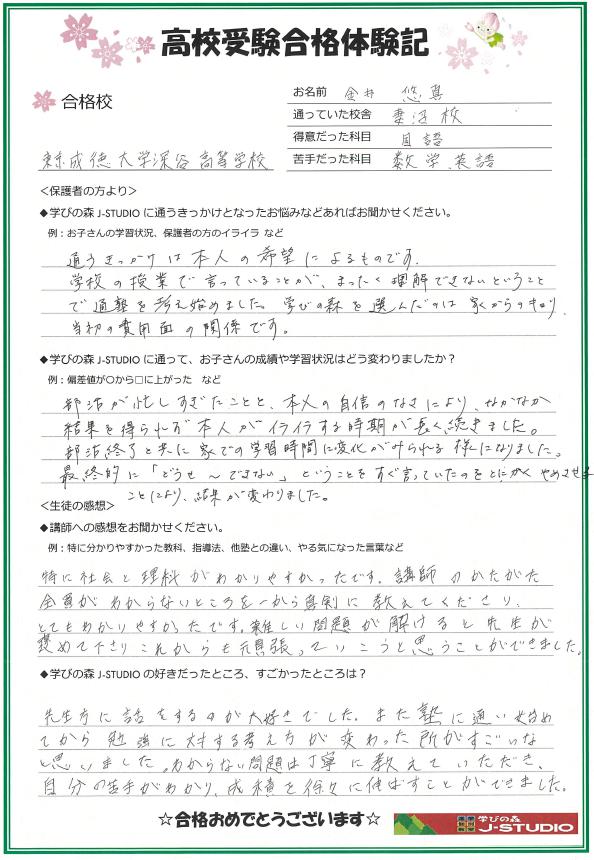 高校受験合格体験記
合格校
お名前 金井 悠真
通っていた校舎 妻沼校
得意だった科目 国語
苦手だった科目 数学 英語
東京成徳大学深谷高等学校
<保護者の方より>
◆学びの森 J-STUDIO に通うきっかけとなったお悩みなどあればお聞かせください。
例：お子さんの学習状況、保護者の方のイライラ など
通うきっかけは本人の希望によるものです。
学校の授業で言っていることが、まったく理解できないということ
で通塾を考え始めました。学びの森を選んだのは家からのきょり、
当初の費用面の関係です。
◆学びの森 J-STUDIO に通って、お子さんの成績や学習状況はどう変わりましたか？
例：偏差値が○から□に上がった など
部活が忙しすぎたことと、本人の自信のなさにより、なかなか
結果を得られず本人がイライラする時期が長く続きました。
部活終了と共に家での学習時間に変化がみられる様になりました。
最終的に「どうせ～できない」ということをすぐ言っていたのをとにかくやめさせる
ことにより、結果が変わりました。
<生徒の感想>
◆講師への感想をお聞かせください。
例：特に分かりやすかった教科、指導法、他塾との違い、やる気になった言葉など
特に社会と理科がわかりやすかったです。講師のかたがた
全員がわからないところを一から真剣に教えてくださり、
とてもわかりやすかったです。難しい問題が解けると先生が
褒めて下さりこれからも頑張っていこうと思うことができました。
◆学びの森 J-STUDIO の好きだったところ、すごかったところは？
先生方に話をするのが大好きでした。また塾に通い始め
てから勉強に対する考え方が変わった所がすごいな
と思いました。わからない問題は丁寧に教えていただき、
自分の苦手がわかり、成績を徐々に伸ばすことができました。
☆合格おめでとうございます☆
学びの森
J-STUDIO